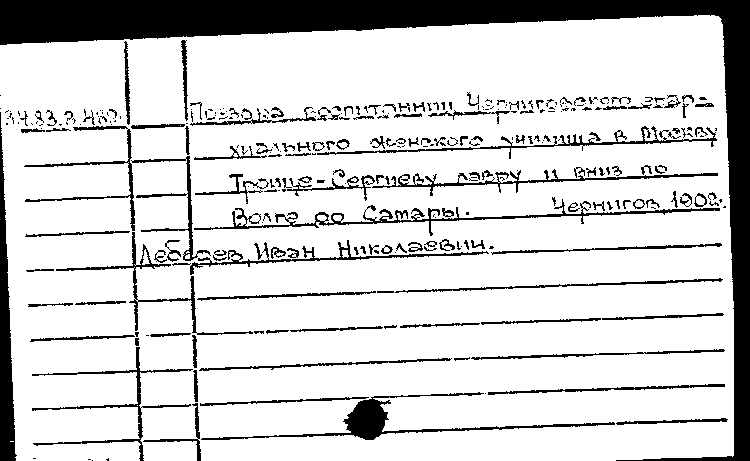 34.83.3.480. Поездка воспитанниц Черниговского епар-
хиального женского училища в Москву
Троице-Сергиеву лавру и вниз по
Волге до Самары. Чернигов, 1903.
Лебедев, Иван Николаевич.